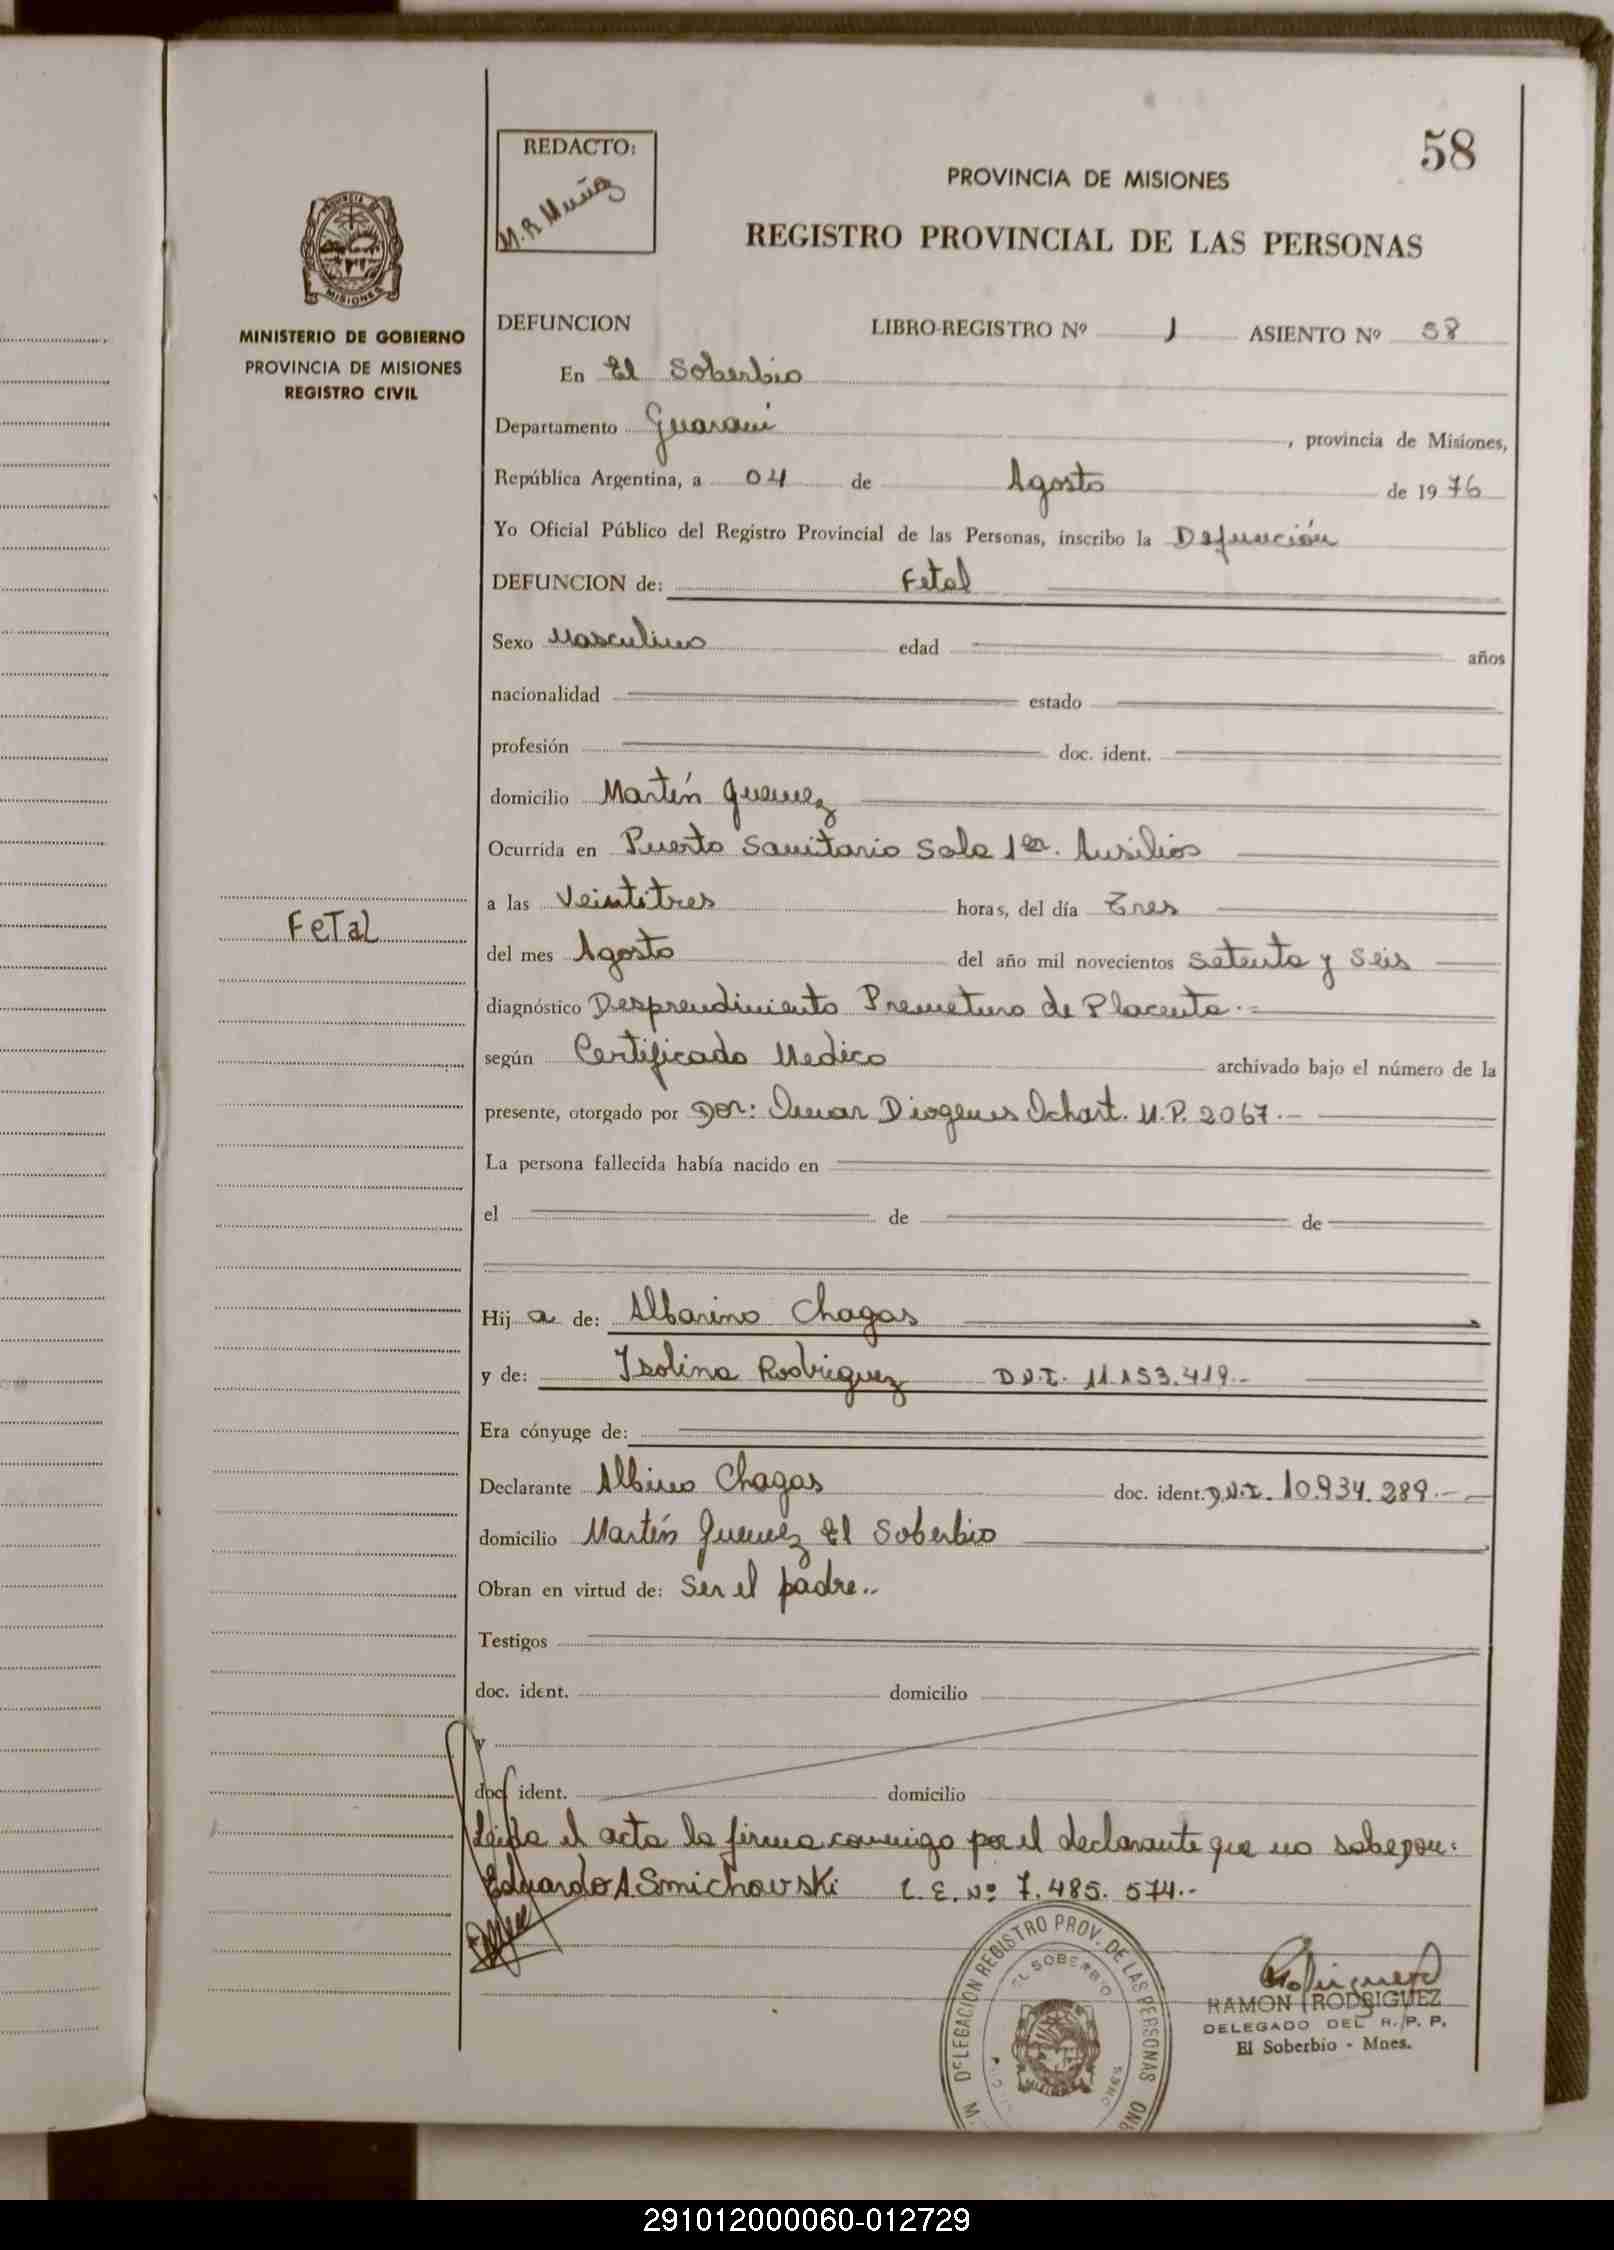 58
REDACTO:
M.R. Muñoz
PROVINCIA DE MISIONES
REGISTRO PROVINCIAL DE LAS PERSONAS
MISIONES
MINISTERIO DE GOBIERNO
PROVINCIA DE MISIONES
REGISTRO CIVIL
DEFUNCION LIBRO-REGISTRO Nº 1 ASIENTO Nº 58
En El Soberbio
Departamento Guarani, provincia de Misiones,
República Argentina, a 04 de Agosto de 1976
Yo Oficial Público del Registro Provincial de las Personas, inscribo la Defunción
DEFUNCION de: Fetal
Sexo Masculino edad años
nacionalidad estado
profesión doc. ident.
domicilio Martín Guemez
Ocurrida en Puesto Sanitario Sala 1er. Ausilios
a las Veintitres horas, del día Tres
FeTal
del mes Agosto del año mil novecientos Setenta y Seis
diagnóstico Desprendimiento Premeturo de Placenta.-
según Certificado Medico archivado bajo el número de la
presente, otorgado por Dor: Omar Diogenes Ochart. M.P. 2067.-
La persona fallecida había nacido en
el de de
Hij a de: Albarino Chagas
y de: Isolina Rodriguez D.N.I. 11.153.419.-
Era cónyuge de:
Declarante Albino Chagas doc. ident. D.N.I. 10.934.289.-
domicilio Martín Guemez El Soberbio
Obran en virtud de: Ser el padre..
Testigos
doc. ident. domicilio
y
doc. ident. domicilio
Leida el acta la firma conmigo por el declarante que no sabe por:
Eduardo A Smichovski L.E.Nº 7.485.574.-
DELEGACION REGISTRO PROV. DE LAS PERSONAS
EL SOBERBIO
RAMON RODRIGUEZ
DELEGADO DEL R. P. P.
El Soberbio - Mnes.
291012000060-012729